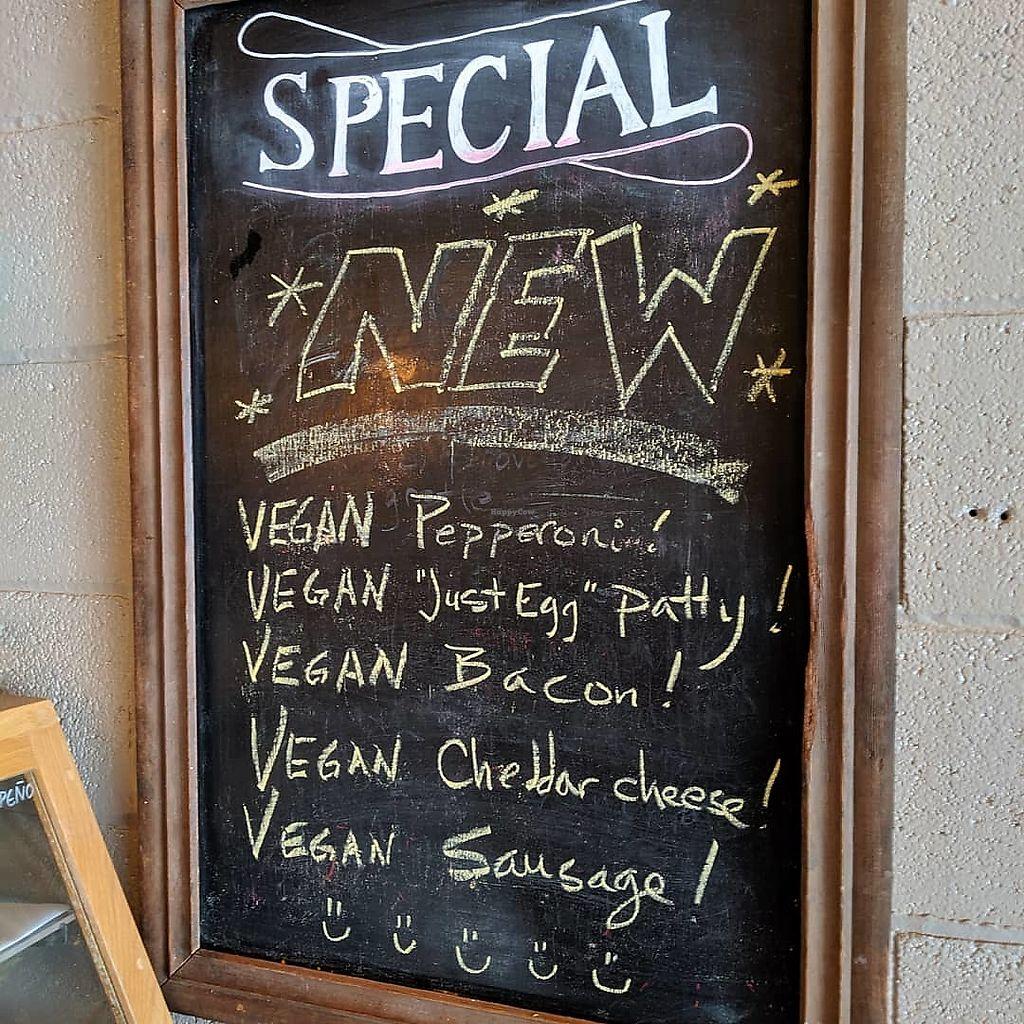 SPECIAL
NEW
VEGAN Pepperoni!
VEGAN "Just Egg" patty!
VEGAN Bacon!
VEGAN Cheddar cheese!
VEGAN Sausage!
HappyCow